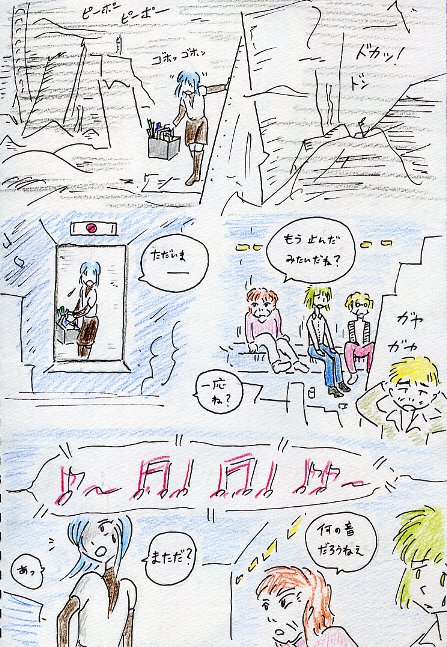 ピーポー
ピーポー
ゴホッ ゴホッ
ドカッ!
ドン
ただいま
ー
もう止んだ
みたいだね?
ガヤ
ガヤ
一応
ね?
あっ
まただ?
何の音
だろうねぇ